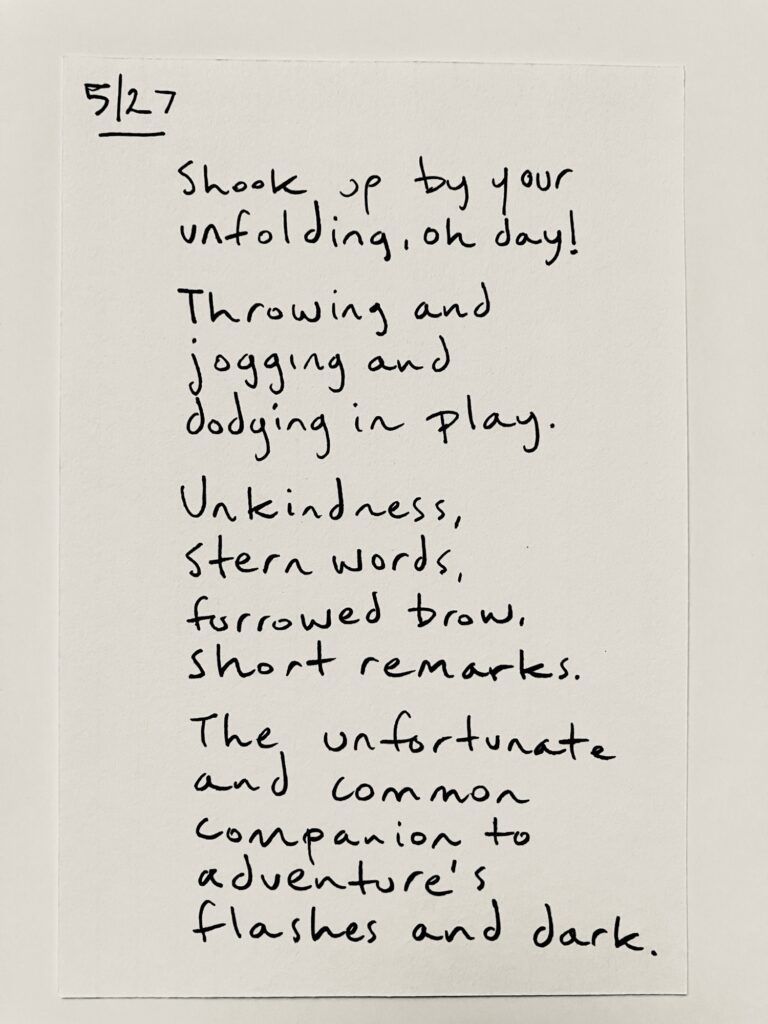 5/27
Shook up by your
unfolding, oh day!
Throwing and
jogging and
dodging in play.
Unkindness,
stern words,
furrowed brow,
short remarks.
The unfortunate
and common
companion to
adventure's
flashes and dark.